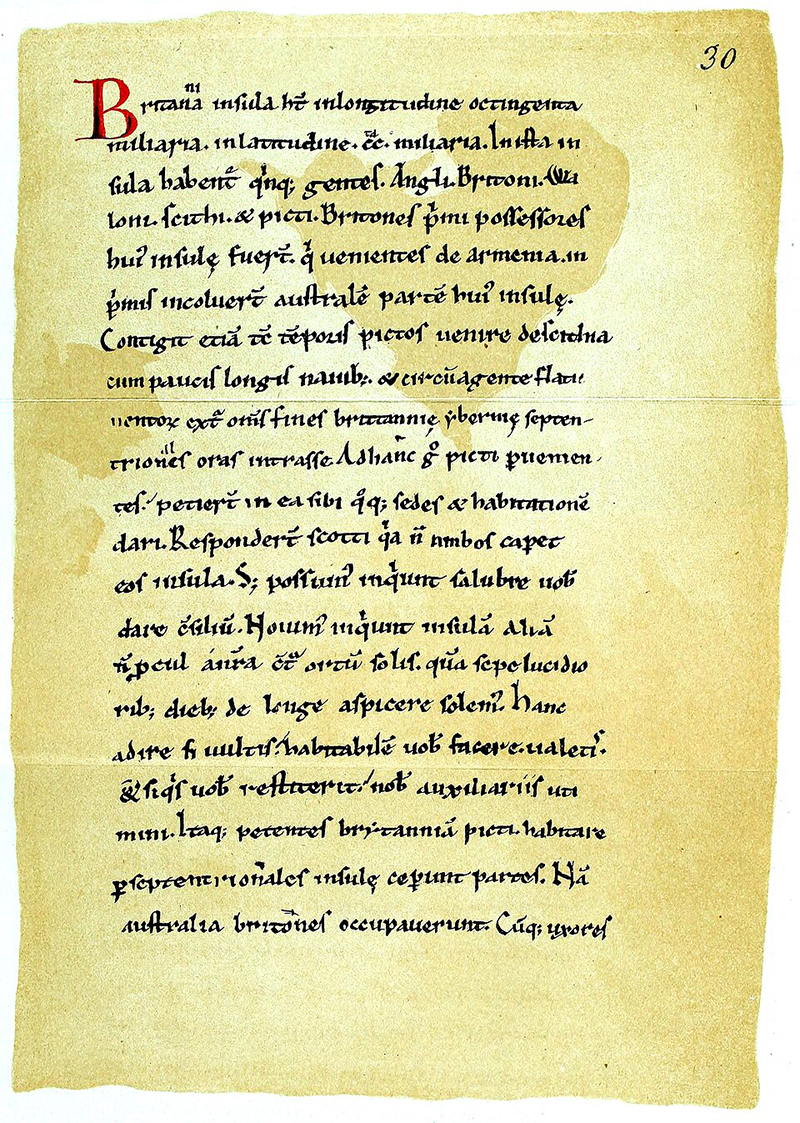 30
Britanniа insula hт̄ inlongitudine octingenta
miliaria. inlatitudine. c̄c. miliaria. Inista in
sula habent̄ qinq; gentes. Angli. Britoni. Wa
loni. scithi. & picti. Britones p̄mi possessores
hui' insulę fuer̄t. qͥ uenientes de armenia. in
pͥmis incoluer̄t australē partē hui' insulę.
Contigit etiā tc̄ tēporis pictos uenire descithia
cum paucis longis nauib;. & circūagente flatu
uentoꝝ ext̄ om̄s fines brittannię ybernię septen-
trionales oras intrasse. Adhanc gͦ picti ꝑuenien-
tes. petier̄t in ea sibi qͦq; sedes & habitationē
dari. Responder̄t scotti qͥa n̄ ambos cap̄et
eos insula. S; possum' inqͥunt salubre uob̄
dare c̄siliū. Nouim' inqͥunt insulā aliā
n̄ ꝓcul anr̄a c̄tͣ ortū solis. quā sepe lucidio
rib; dieb; de longe aspicere solem'. Hanc
adire si uultis. habitabilē uob̄ facere. ualetis.
& siqͥs uob̄ restiterit. nob̄ auxiliariis uti
mini. Itaq; petentes bryttanniā picti. habitare
ꝑseptentrionales insulę ceꝑunt partes. Nā
australia britones occupauerunt. Cūq; uxores